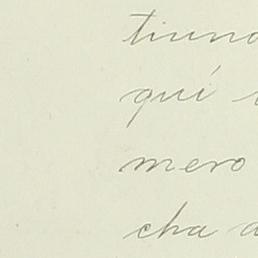 tiuna
quí
mero
cha a